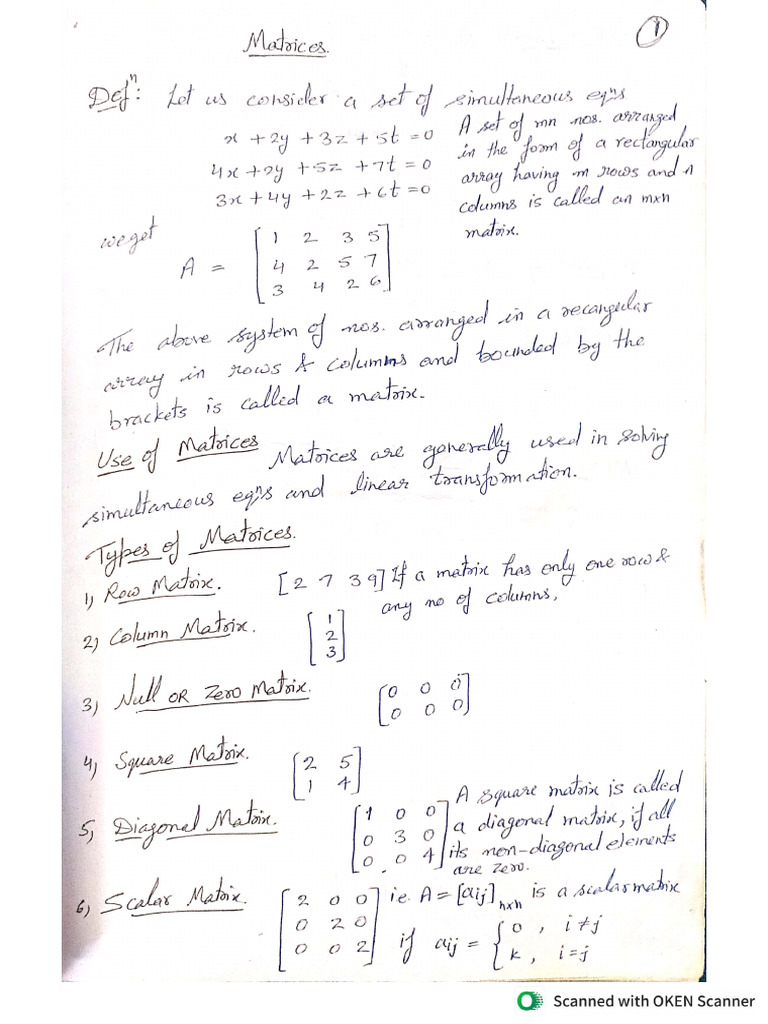 Matrices.
1
Defⁿ: Let us consider a set of simultaneous eqⁿs
x + 2y + 3z + 5t = 0
4x + 2y + 5z + 7t = 0
3x + 4y + 2z + 6t = 0
A set of mn nos. arranged
in the form of a rectangular
array having m rows and n
columns is called an mxn
matrix.
we get
A = [ 1 2 3 5
4 2 5 7
3 4 2 6 ]
The above system of nos. arranged in a recangular
array in rows & columns and bounded by the
brackets is called a matrix.
Use of Matrices Matrices are generally used in solving
simultaneous eqⁿs and linear transformation.
Types of Matrices.
1) Row Matrix. [2 7 3 9] If a matrix has only one row &
any no of columns,
2) Column Matrix. [ 1
2
3 ]
3) Null OR Zero Matrix. [ 0 0 0
0 0 0 ]
4) Square Matrix. [ 2 5
1 4 ]
5) Diagonal Matrix. [ 1 0 0
0 3 0
0 0 4 ]
A square matrix is called
a diagonal matrix, if all
its non-diagonal elements
are zero.
6) Scalar Matrix. [ 2 0 0
0 2 0
0 0 2 ]
ie. A = [aij]nxn is a scalar matrix
if aij = { 0 , i ≠ j
k , i = j
Scanned with OKEN Scanner